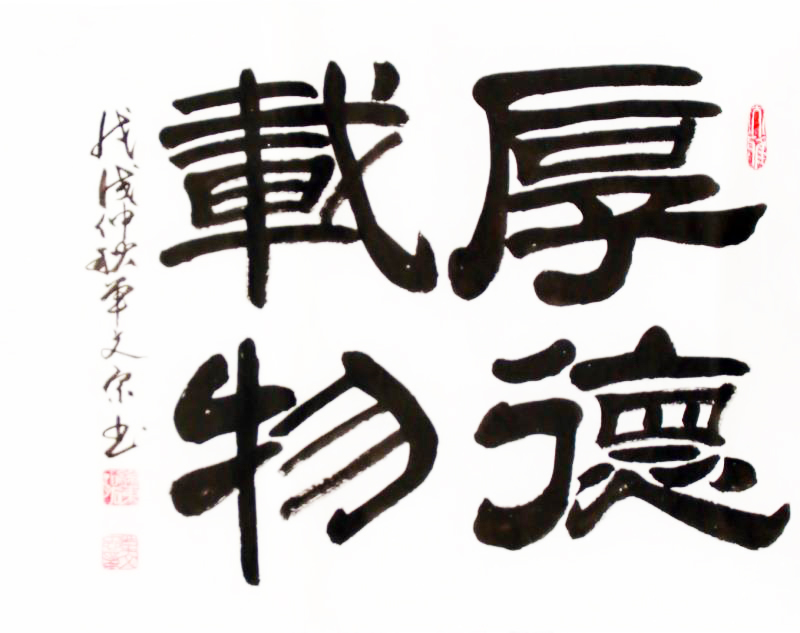 厚德
載物
戊戌仲秋單文宗书